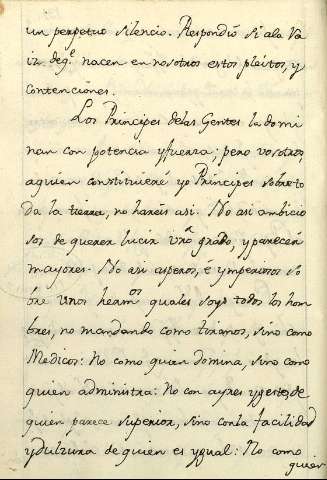 un perpetuo silencio. Respondió si ala Va
iz. deqᵉ nacen en nosotros estos pleitos, y
contenciones.
Los Principes delas Gentes la domi
nan con potencia y fuerza; pero vosotros,
aquien constituieré yo Principes sobre to
da la tierra, no hareis asi. No asi ambicio
sos de querer lucir vrõ grado, y parecer
mayores. No asi asperos, é ymperiosos so
bre unos hermᵒˢ quales soys todos los hom
bres, no mandando como tiranos, sino como
Medicos: No como quien domina, sino como
quien administra: No con ayres y gesto, de
quien parece superior, sino con la facilidad
y dulzura de quien es ygual: No como
quien